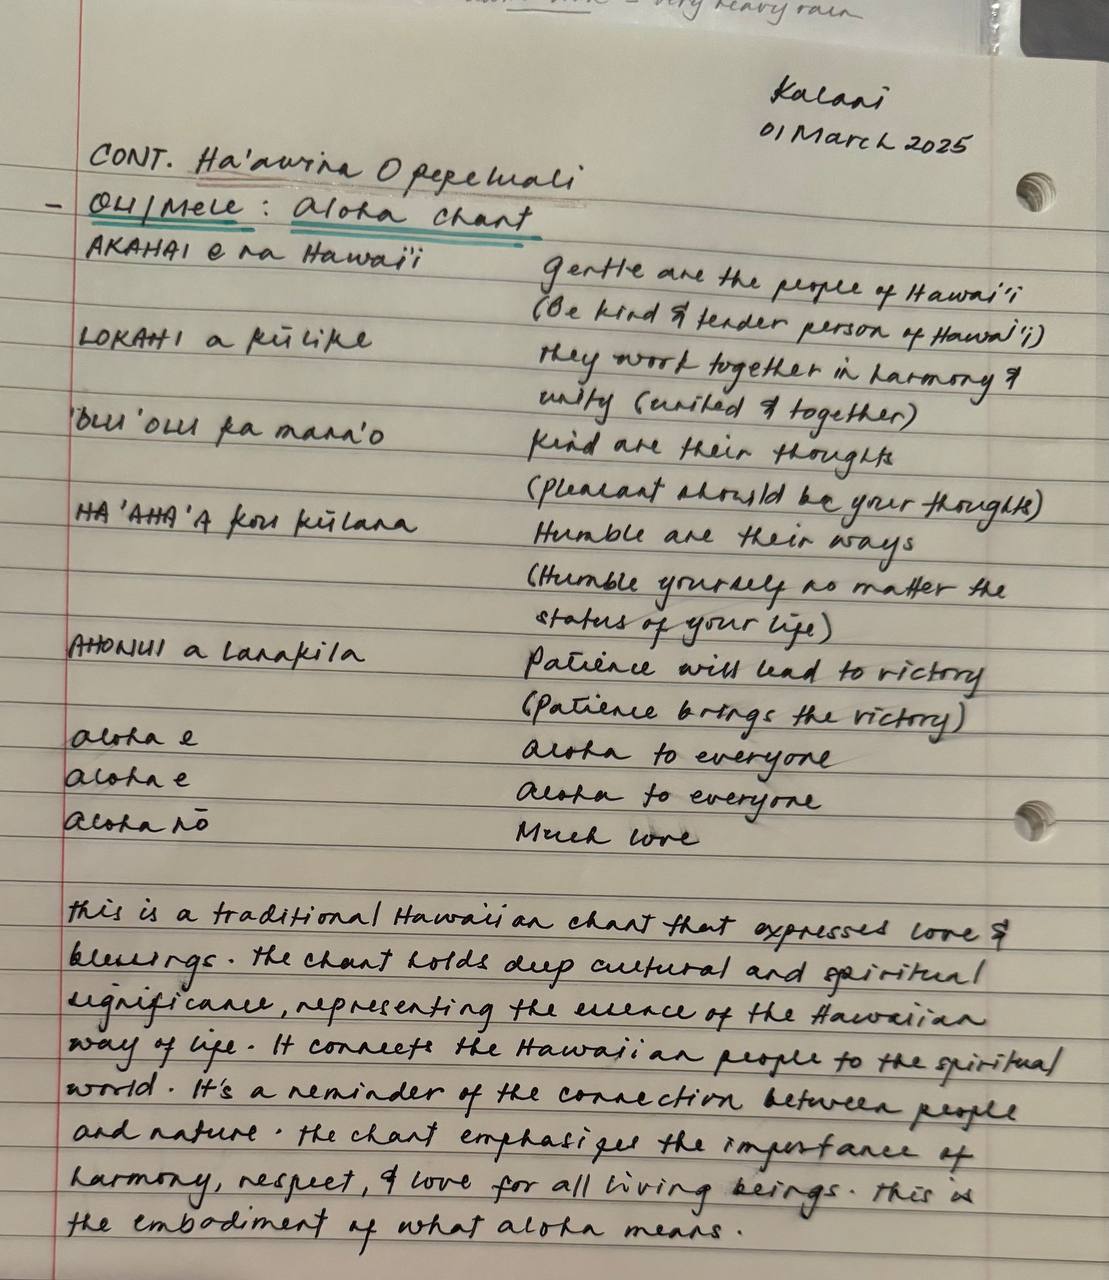 very heavy rain
Kalani
01 March 2025
CONT. Ha'awina O pepeluali
- OLI/Mele : aloha chant
AKAHAI e na Hawai'i
gentle are the people of Hawai'i
(Be kind & tender person of Hawai'i)
LOKAHI a kūlike
they work together in harmony &
unity (united & together)
'OLU 'OLU ka mana'o
kind are their thoughts
(pleasant should be your thoughts)
HA 'AHA 'A kou kūlana
Humble are their ways
(Humble yourself no matter the
status of your life)
AHONUI a lanakila
patience will lead to victory
(patience brings the victory)
aloha e
aloha to everyone
aloha e
aloha to everyone
aloha nō
Much love
this is a traditional Hawaiian chant that expresses love &
blessings. the chant holds deep cultural and spiritual
significance, representing the essence of the Hawaiian
way of life. It connects the Hawaiian people to the spiritual
world. It's a reminder of the connection between people
and nature. the chant emphasizes the importance of
harmony, respect, & love for all living beings. this is
the embodiment of what aloha means.